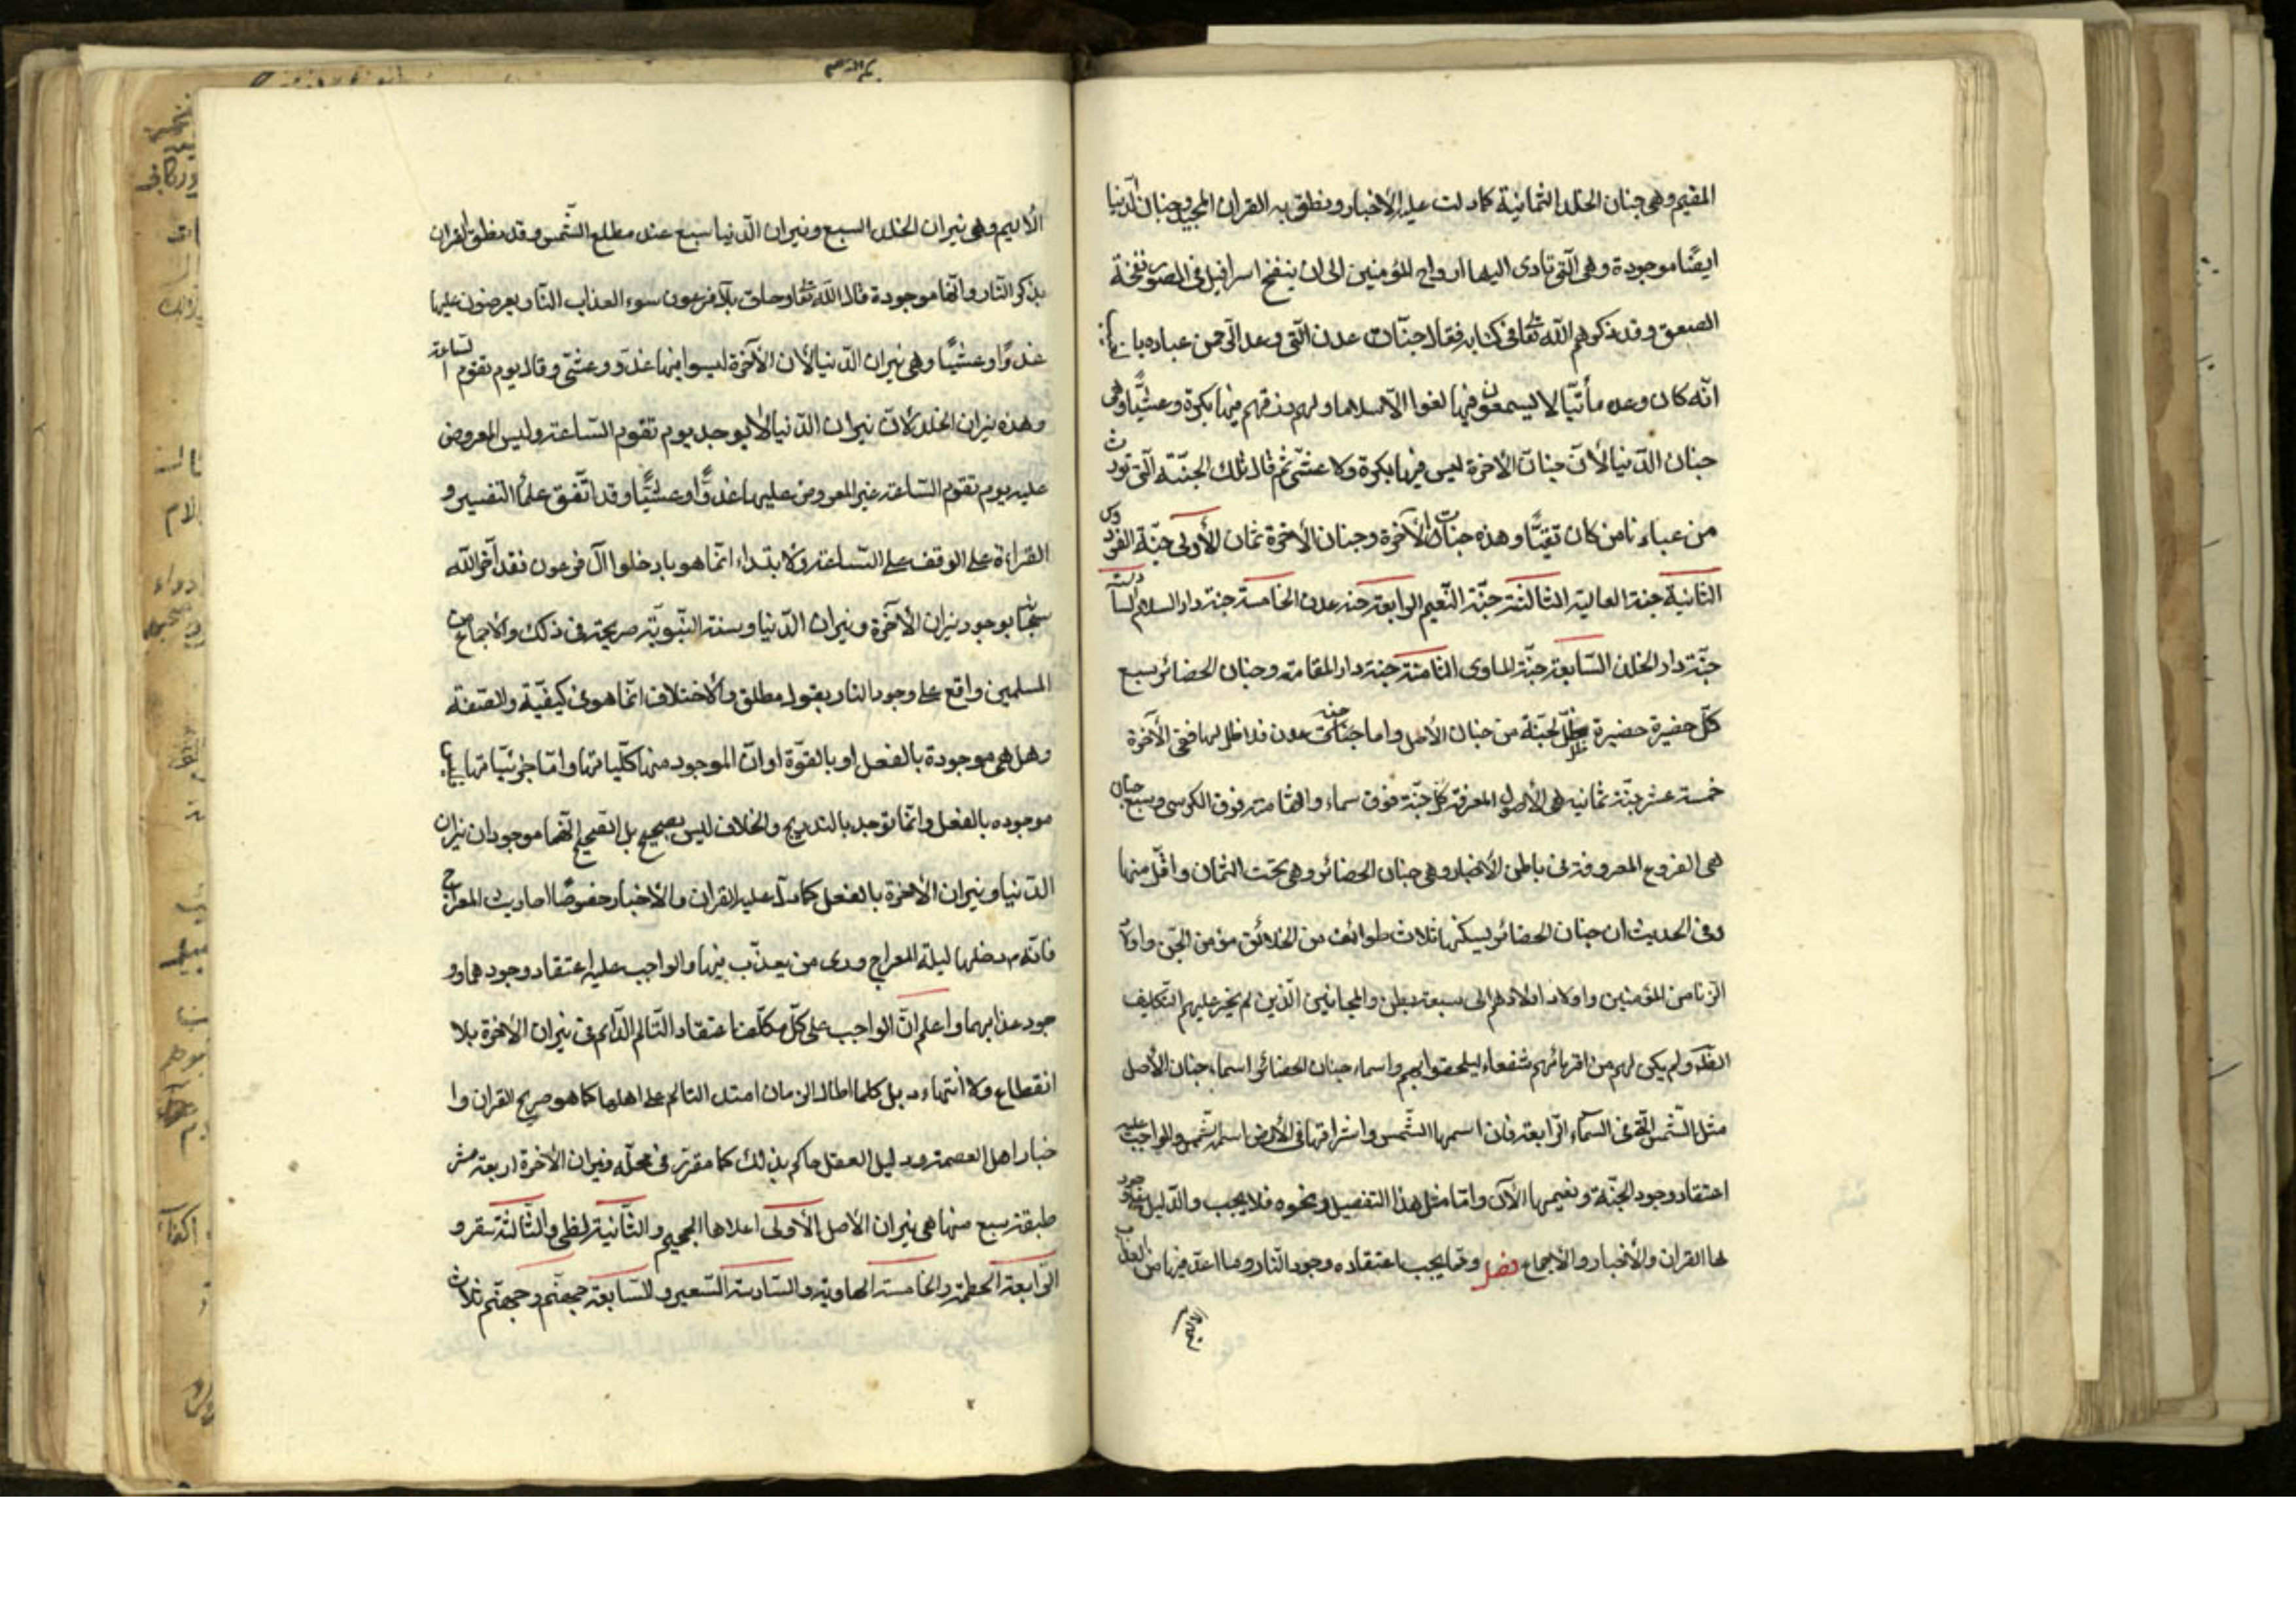 المقيم وهى جنان الخلد الثمانية كما دلت عليه الأخبار ونطق به القران المجيد وجنان الدنيا
ايضًا موجودة وهى الّتى تاوى اليها ارواح المؤمنين الى ان ينفخ اسرافيل فى الصور نفخة
الصعق وقد ذكرهم الله تعا فى كتابه فقال جنّات عدن الّتى وعد الرّحمن عباده بالغيب
انّه كان وعده مأتيّا لا يسمعون فيها لغوا الّا سلاما ولهم رزقهم فيها بكرة وعشيًّا وهى
جنان الدّنيا لأنّ جنان الأخرة ليس فيها بكرة ولا عشّى ثم قال تلك الجنّة الّتى نورث
من عبادنا من كان تقيًّا وهذه جنات الأخرة وجنان الأخرة ثمان الأولى جنّة الفردوس
الثانية جنة العالية الثالثة جنّة النّعيم الرابعة جنة عدن الخامسة جنة دار السلام السادسة
جنّة دار الخلد السّابعة جنّة الماوى الثامنة جنة دار المقامة وجنان الحضائر سبع
كلّ حضيرة حضيرة ظلّ لجنّة من جنان الأصل واما جنة عدن فلا ظل لها ففى الأخرة
خمسة عشر جنّة ثمانية هى الأصول المعرفة كلّ جنّة فوق سماء والثامنة فوق الكرسى وسبع جنان
هى الفروع المعروفة فى باطن الأخبار وهى جنان الحضائر وهى تحت الثمان واقلّ منها
وفى الحديث ان جنان الحضائر يسكنها ثلاث طوائف من الخلائق مؤمن الجنّ واولاد
الزنا من المؤمنين واولاد اولادهم الى سبعة بطن والمجانين الّذين لم يجر عليهم التّكليف
ولم يكن لهم من اقربائهم شفعاء ليلحقوا بهم واسماء جنان الحضائر اسماء جنان الأصل
مثل الشّمس الّتى فى السّماء الرّابعة فان اسمها الشّمس واشراقها فى الأرض اسمه شّمس والواجب عليه
اعتقاد وجود الجنّة ونعيمها الأن وامّا مثل هذا التفصيل ونحوه فلا يجب والدّليل على وجود
ها القران والأخبار والاجماع فصل وممّا يجب اعتقاده وجود النّار وما اعدّ فيها من العذاب
الأليم وهى نيران الخلد السبع ونيران الدّنيا سبع عند مطلع الشّمس وقد نطق القران
بذكر النّار وانّها موجودة قال الله تعا وحاق بآل فرعون سوء العذاب النّار يعرضون عليها
غدوًّا وعشيًّا وهى نيران الدّنيا لأن الأخرة ليس فيها غدو وعشّى وقال يوم تقوم السّاعة
وهذه نيران الخلد لأنّ نيران الدّنيا لا يوجد يوم تقوم السّاعة وليس المعروض
عليه يوم تقوم السّاعة غير المعروض عليها غدوًّا وعشيًّا وقد اتّفق علماء التفسير و
القراءة على الوقف على السّاعة والابتداء انّما هو بادخلوا آل فرعون فقد اخبر الله
سبحانه بوجود نيران الأخرة ونيران الدّنيا وسنة النّبويّة صريحة فى ذلك والاجماع من
المسلمين واقع على وجود النار بقول مطلق والاختلاف انّما هو فى كيفيّة والصّفة
وهل هى موجودة بالفعل او بالقوّة او انّ الموجود منها كلّياتها وامّا جزئيّاتها
موجوده بالفعل وانّما توجد بالتدريج والخلاف ليس بصحيح بل الصّحيح انّهما موجودان نيران
الدّنيا ونيران الأخرة بالفعل كما دلّ عليه القران والأخبار خصوصًا احاديث المعراج
فانّه دخلها ليلة المعراج وراى من يعذّب فيها والواجب عليه اعتقاد وجودهما وو
جود عذابهما واعلم انّ الواجب على كلّ مكلّف اعتقاد التّالم الدّائم فى نيران الأخرة بلا
انقطاع ولا انتهاء بل كلما طال الزمان امتد التالم على اهلها كما هو صريح القران وا
خبار اهل العصمة ودليل العقل حاكم بذلك كما مقرّر فى محلّه ونيران الأخرة اربعة عشر
طبقة سبع منها هى نيران الأصل الأولى اعلاها الجحيم والثّانية لظى والثّالثة سقر و
الرّابعة الحطمة والخامسة الهاوية والسّادسة السّعير والسّابعة جهنّم وجهنّم ثلاث